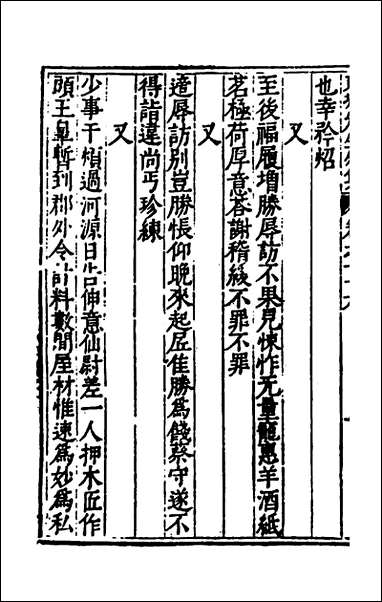 也幸矜炤
又
至後福履增勝辱訪不果見悚怍无量寵惠羊酒紙
茗極荷厚意荅謝稽緩不罪不罪
又
遠辱訪別豈勝悵仰晚來起居佳勝爲餞蔡守遂不
得詣違尚丐珍練
又
少事干煩過河源日告伸意仙尉差一人押木匠作
頭王皐暫到郡外令計料數間屋材惟速爲妙爲私